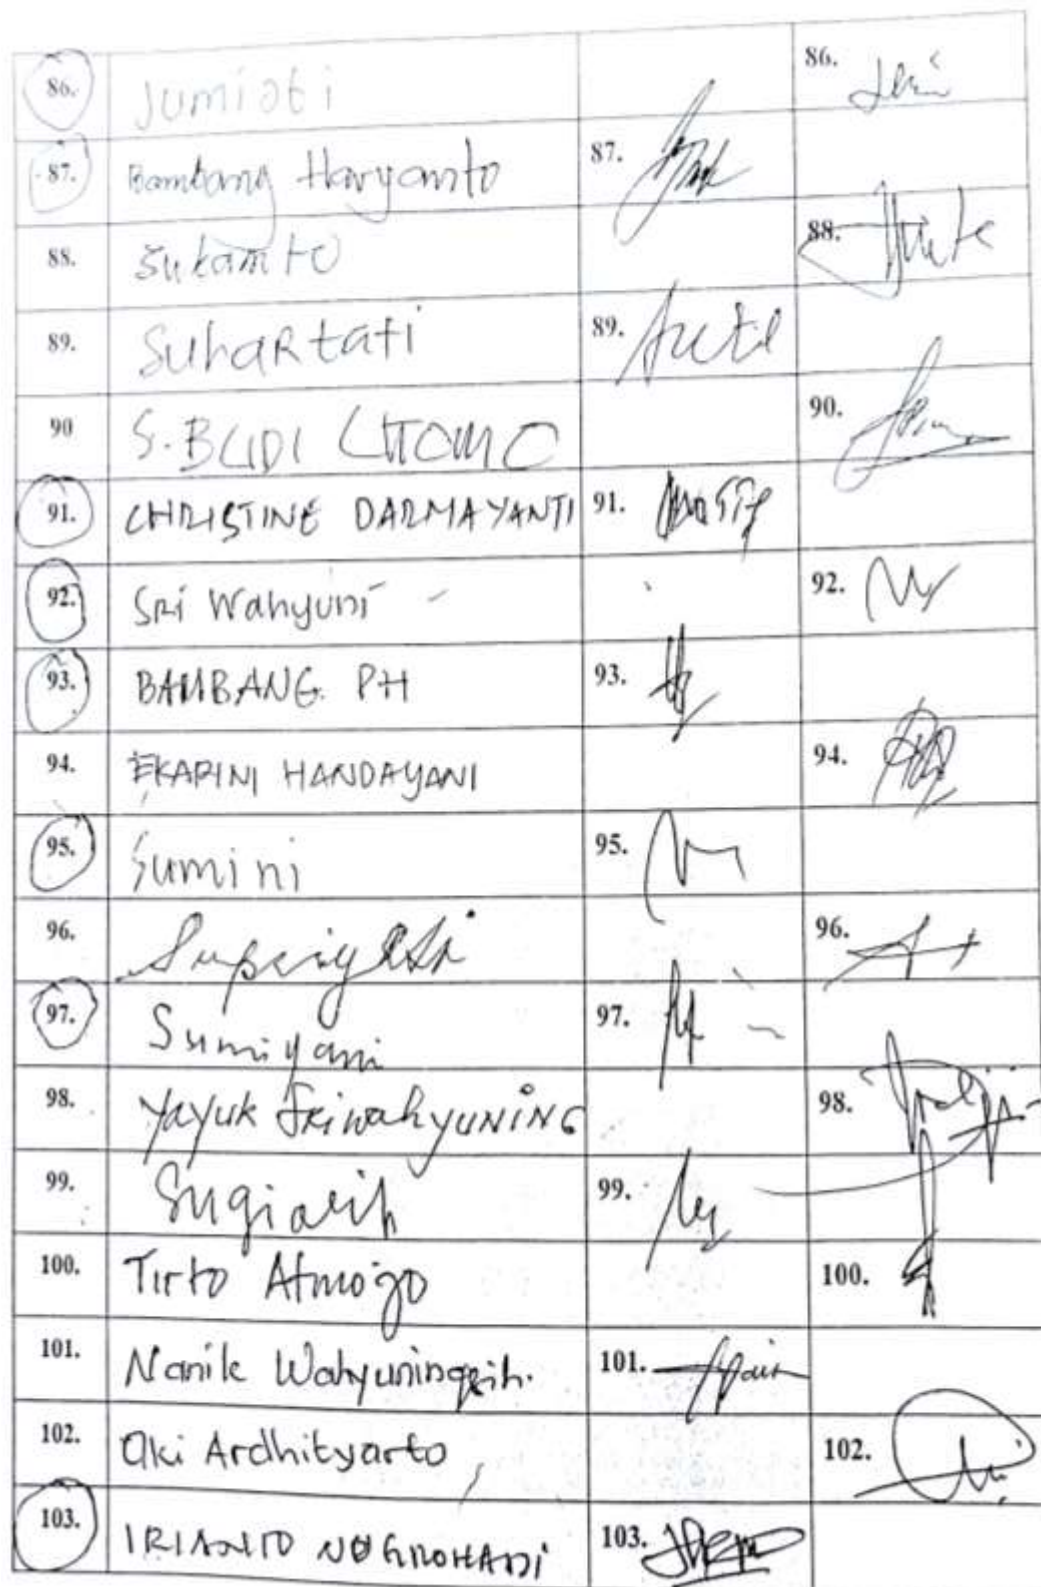 86. Jumiati 86.
87. Bambang Haryanto 87.
88. Sukamto 88.
89. SuhaRtati 89.
90 S. BUDI UTOMO 90.
91. CHRISTINE DARMAYANTI 91.
92. SRi Wahyuni 92.
93. BAMBANG PH 93.
94. EKARINI HANDAYANI 94.
95. Sumini 95.
96. 96.
97. Sumiyani 97.
98. Yayuk SRiwahyuNiNG 98.
99. Sugiarih 99.
100. Tirto Atmojo 100.
101. Nanik Wahyuningsih. 101.
102. Oki Ardhityarto 102.
103. IRIANTO NUGROHADI 103.